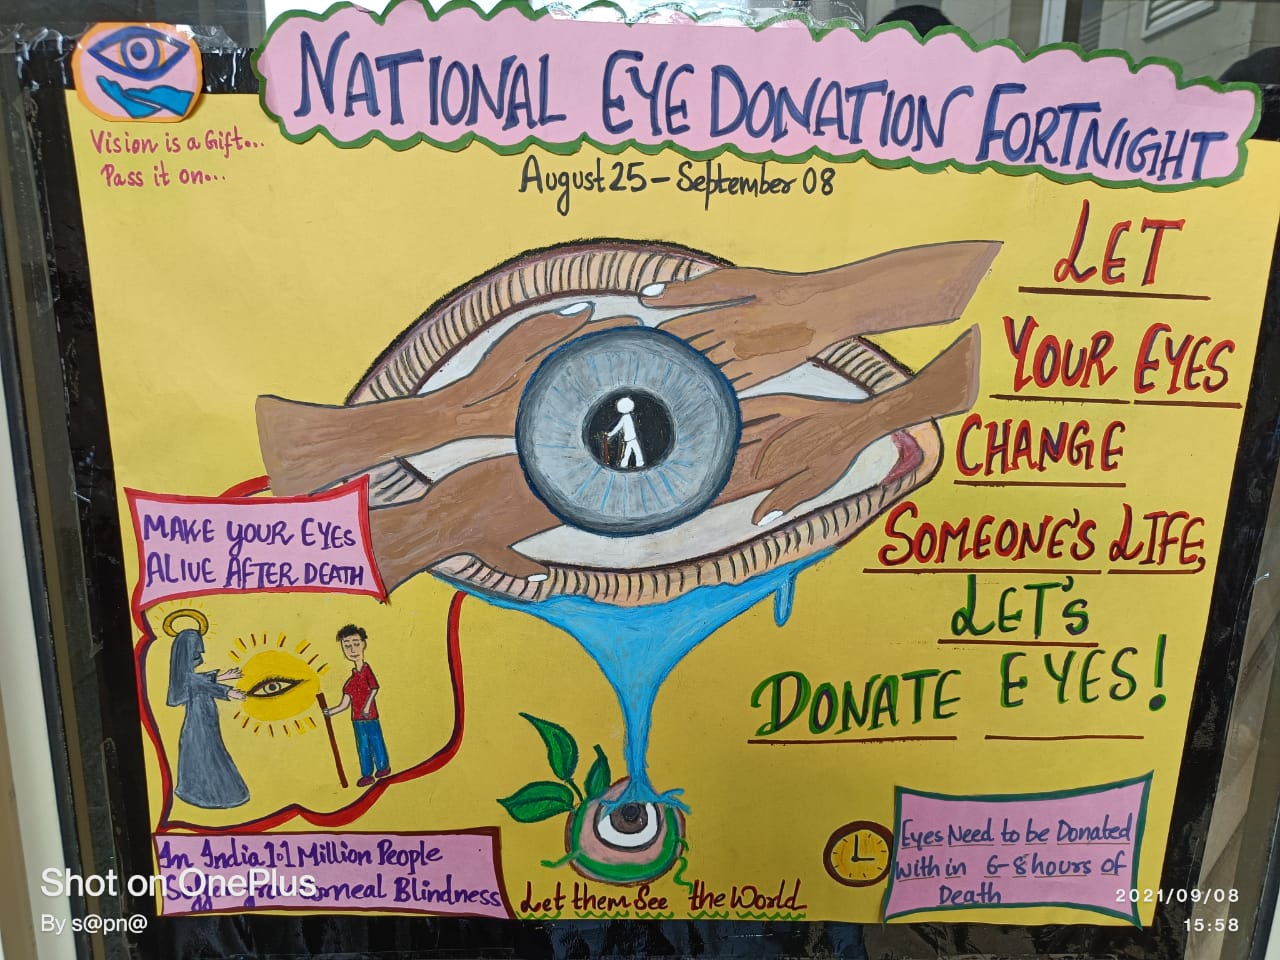 NATIONAL EYE DONATION FORTNIGHT
Vision is a Gift...
Pass it on...
August 25 - September 08
LET
YOUR EYES
CHANGE
SOMEONE'S LIFE,
LET'S
DONATE EYES!
MAKE YOUR EYES
ALIVE AFTER DEATH
In India 1.1 Million People
Corneal Blindness
Let them See the World
Eyes Need to be Donated
within 6-8 hours of
Death
Shot on OnePlus
By s@pn@
2021/09/08
15:58